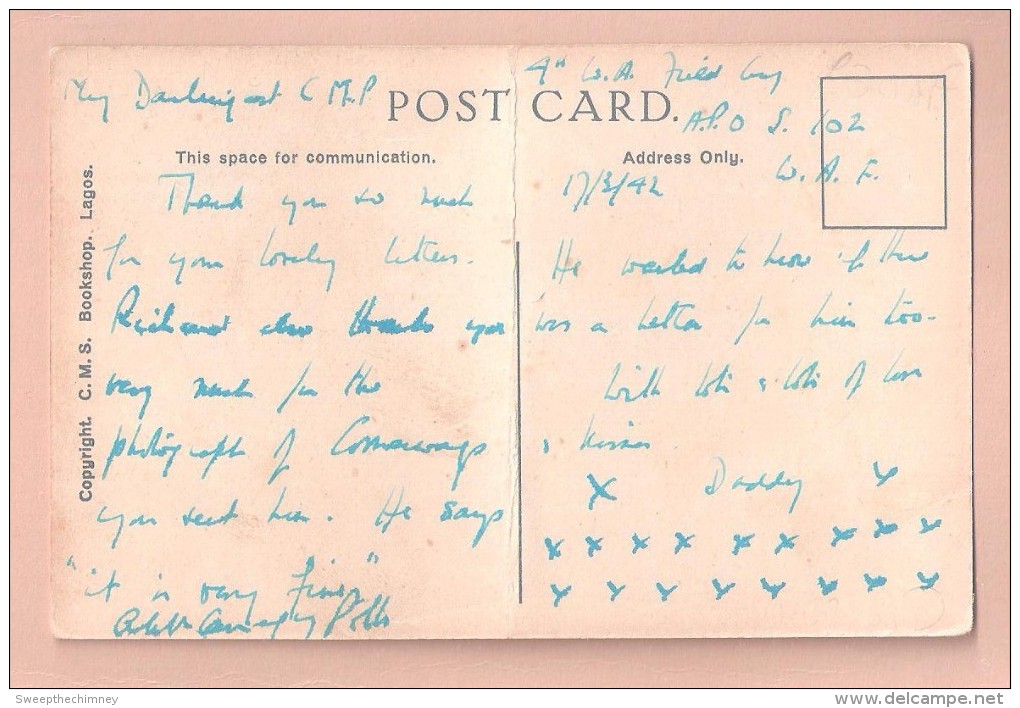 My C M P
POST CARD.
This space for communication.
Thank you so much
for your lovely letters.
Richard also thanks you
very much for the
photograph of Cornerways
you sent him. He says
"it is very Fine"
Copyright. C. M. S. Bookshop. Lagos.
4th W. A. Field
A.P.O S. 102
W. A. F.
Address Only.
17/3/42
He wanted to know if there
was a letter for him too.
With lots & lots of love
& kisses
X Daddy X
X X X X X X X X X
X X X X X X X X
Sweepthechimney
www.delcampe.net